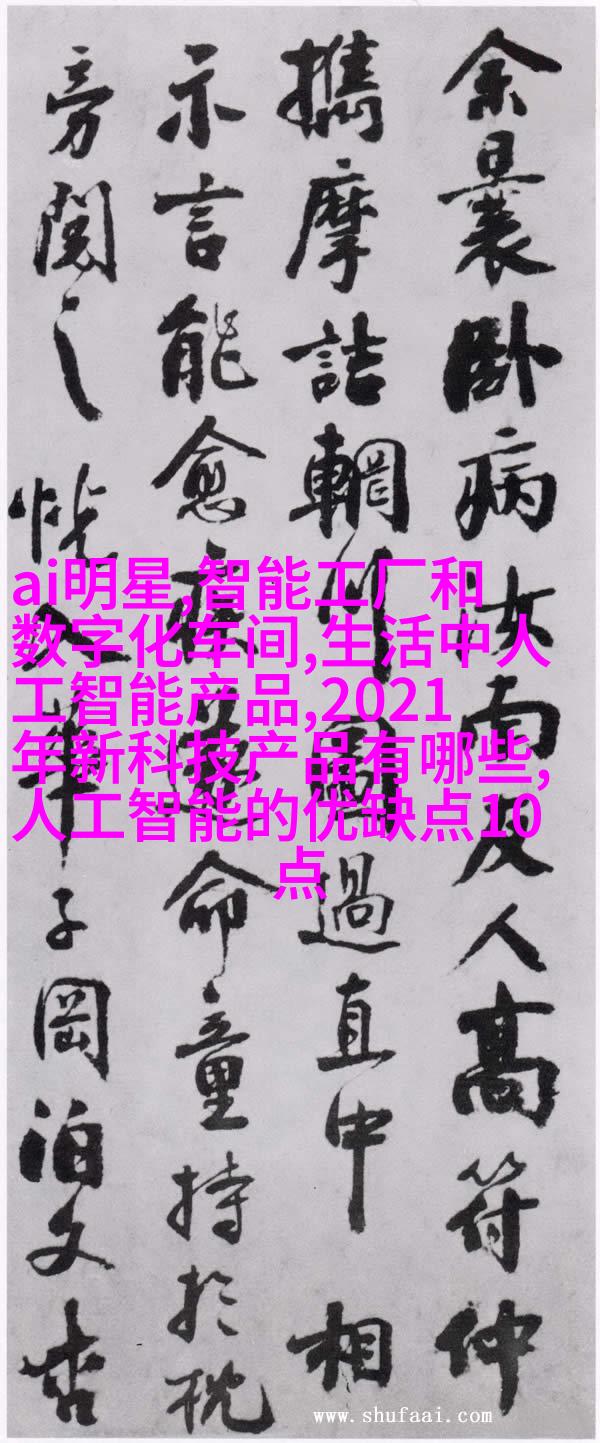 余曩卧病汝南友人高符仲
攜摩詰輞川圖過直中相
示言能愈疾遂命童持於枕
旁閱之恍入華子岡泊文杏
ai明星,智能工厂和
数字化车间,生活中人
工智能产品,2021
年新科技产品有哪些,
人工智能的优缺点10
点
www.shufaai.com